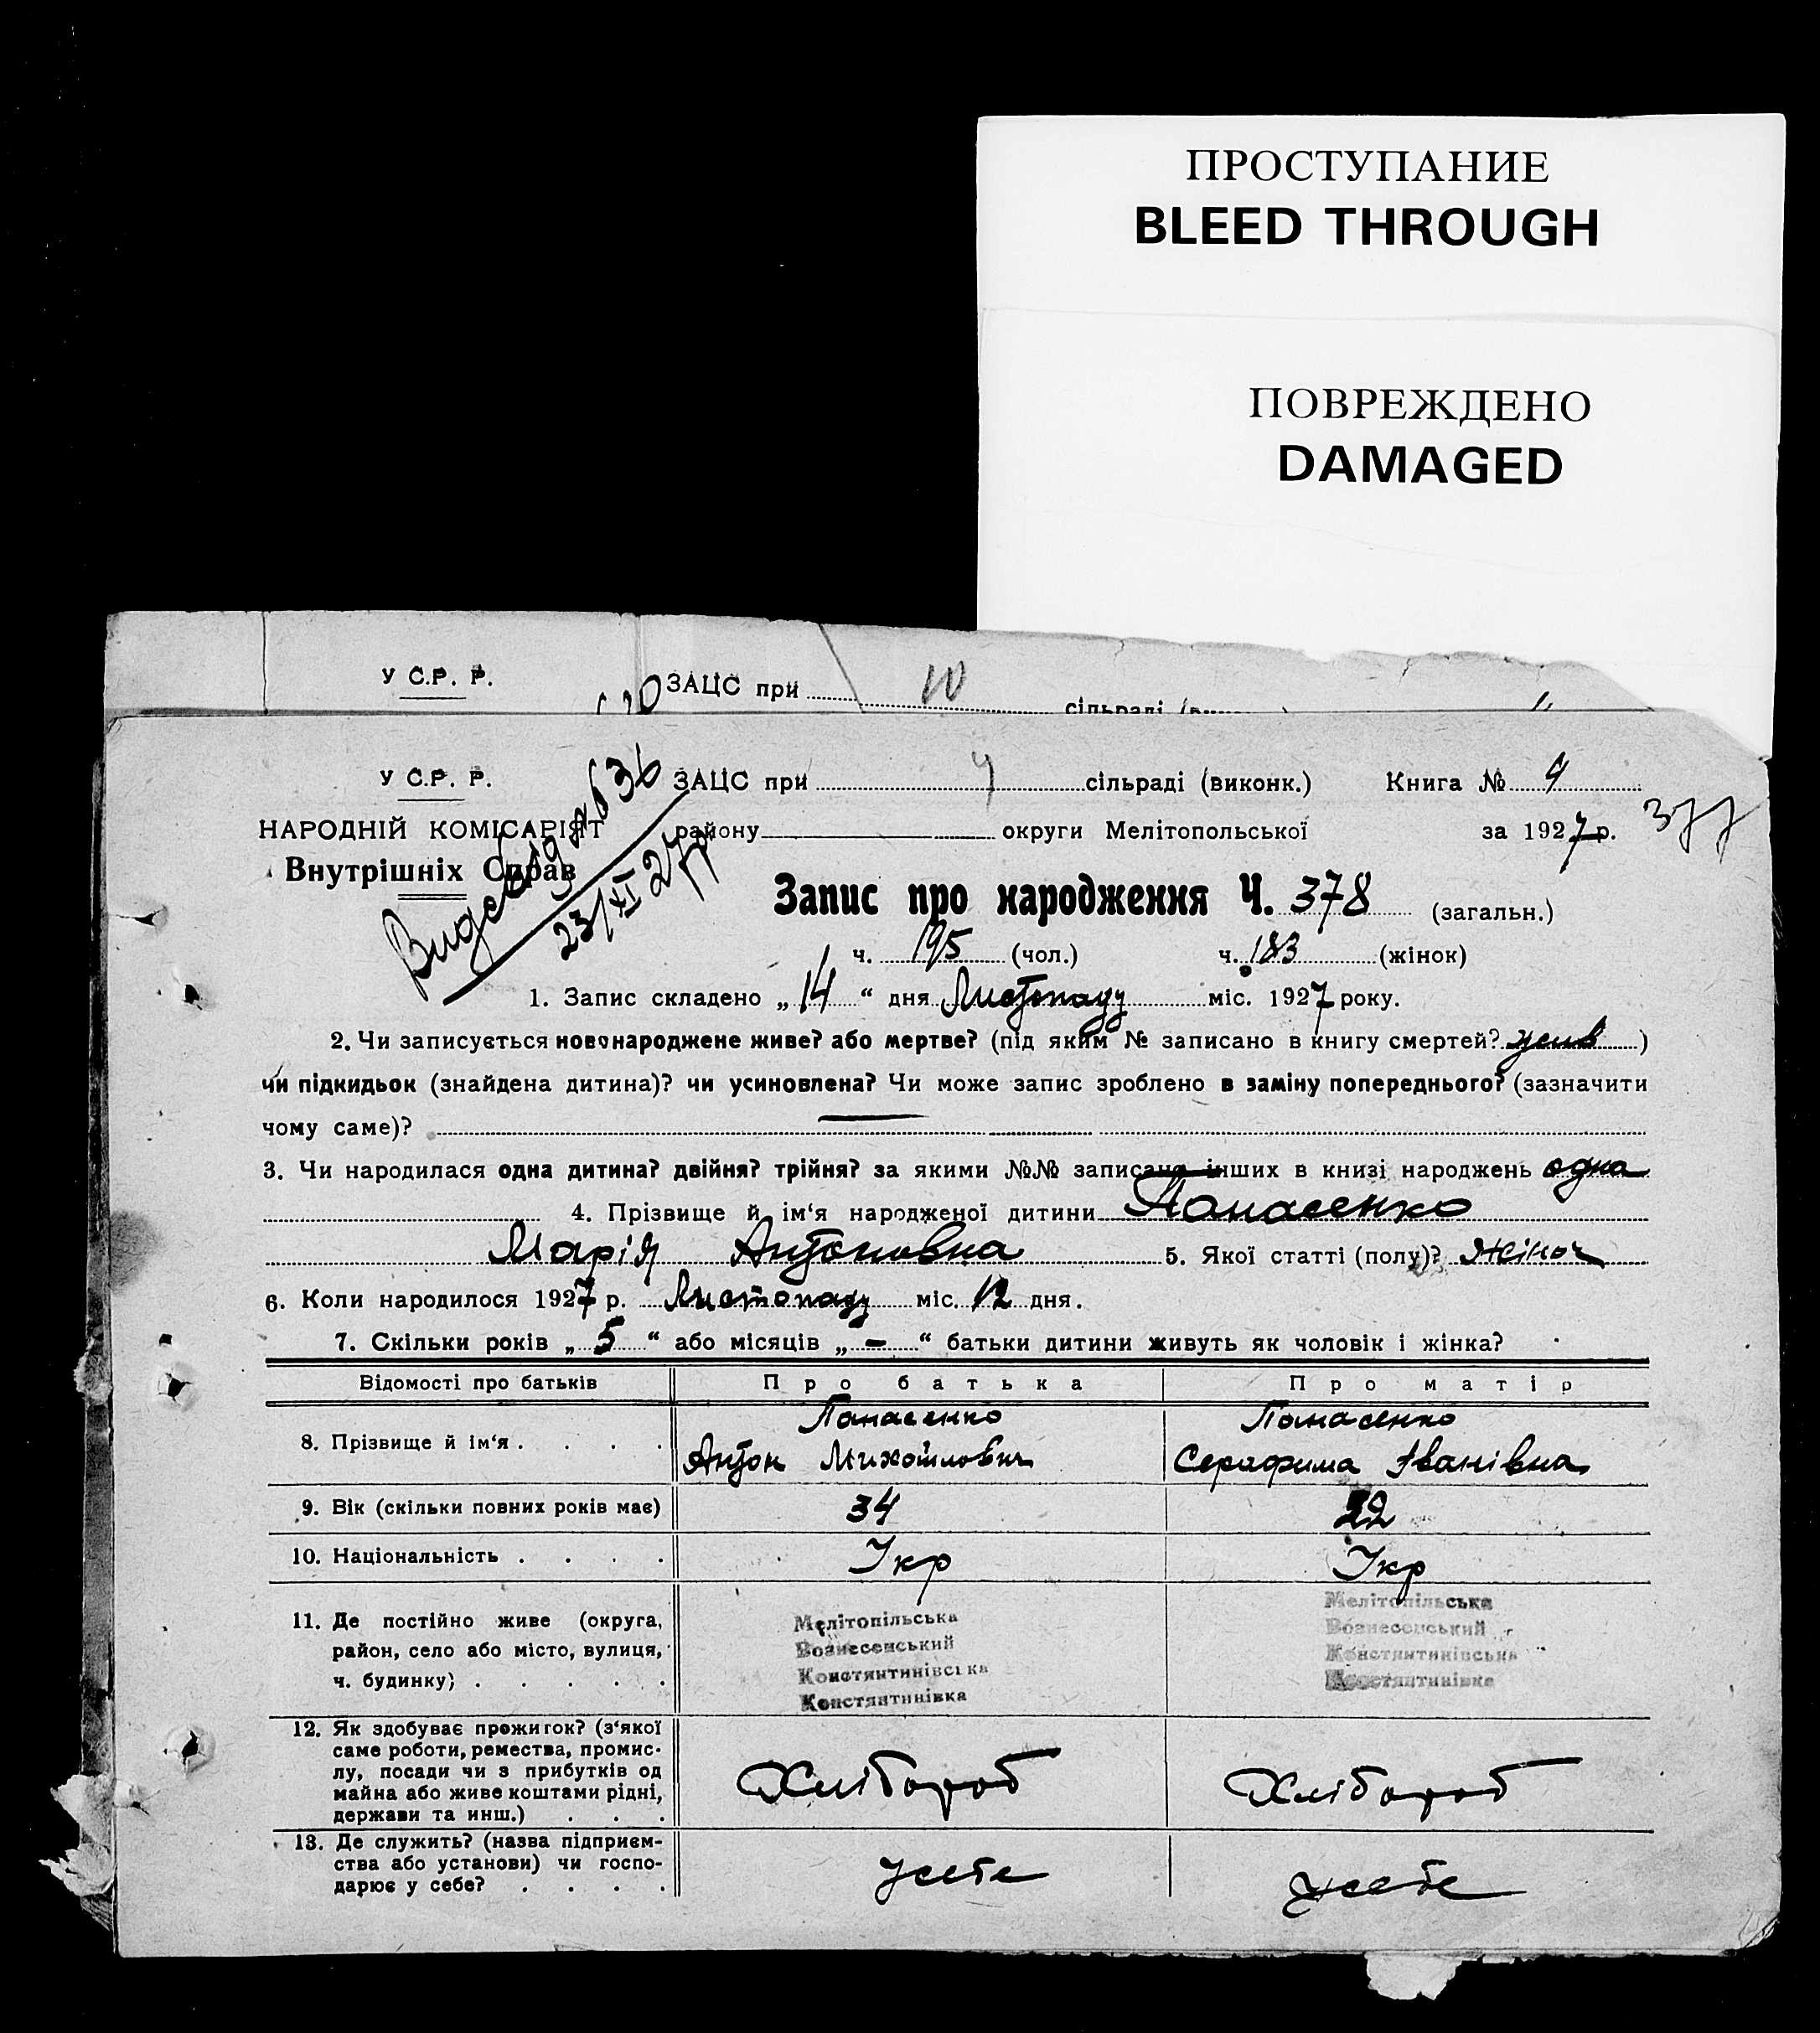 ПРОСТУПАНИЕ
BLEED THROUGH
ПОВРЕЖДЕНО
DAMAGED
У С.Р. Р.
ЗАЦС при 10
сільраді
У С.Р. Р.
ЗАЦС при 4 сільраді (виконк.) Книга № 4
НАРОДНІЙ КОМІСАРІЯТ району округи Мелітопольської за 1927 р. 377
Внутрішніх Справ
23/XI 27р
Запис про народження Ч. 378 (загальн.)
ч. 195 (чол.) ч. 183 (жінок)
1. Запис складено „ 14 “ дня Листопаду міс. 1927 року.
2. Чи записується новонароджене живе? або мертве? (під яким № записано в книгу смертей? жив )
чи підкидьок (знайдена дитина)? чи усиновлена? Чи може запис зроблено в заміну попереднього? (зазначити
чому саме)? —
3. Чи народилася одна дитина? двійня? трійня? за якими №№ записано інших в книзі народжень одна
4. Прізвище й ім‘я народженої дитини Панасенко
Марія Антоновна 5. Якої статті (полу)? жіноч
6. Коли народилося 1927 р. Листопаду міс. 12 дня.
7. Скільки років „ 5 “ або місяців „ – “ батьки дитини живуть як чоловік і жінка?
Відомості про батьків Про батька Про матір
8. Прізвище й ім‘я . . . . Панасенко Панасенко
Антон Михайлович Серафима Іванівна
9. Вік (скільки повних років має) 34 22
10. Національність . . . . Укр Укр
11. Де постійно живе (округа,
район, село або місто, вулиця,
ч. будинку) . . . . .
Мелітопільська
Вознесенський
Константинівська
Константинівка
Мелітопільська
Вознесенський
Константинівська
Константинівка
12. Як здобуває прожиток? (з‘якої
саме роботи, ремества, промис-
лу, посади чи з прибутків од
майна або живе коштами рідні,
держави та инш.) . . .
Хлібороб Хлібороб
13. Де служить? (назва підприєм-
ства або установи) чи госпо-
дарює у себе? . . . .
усебе усебе